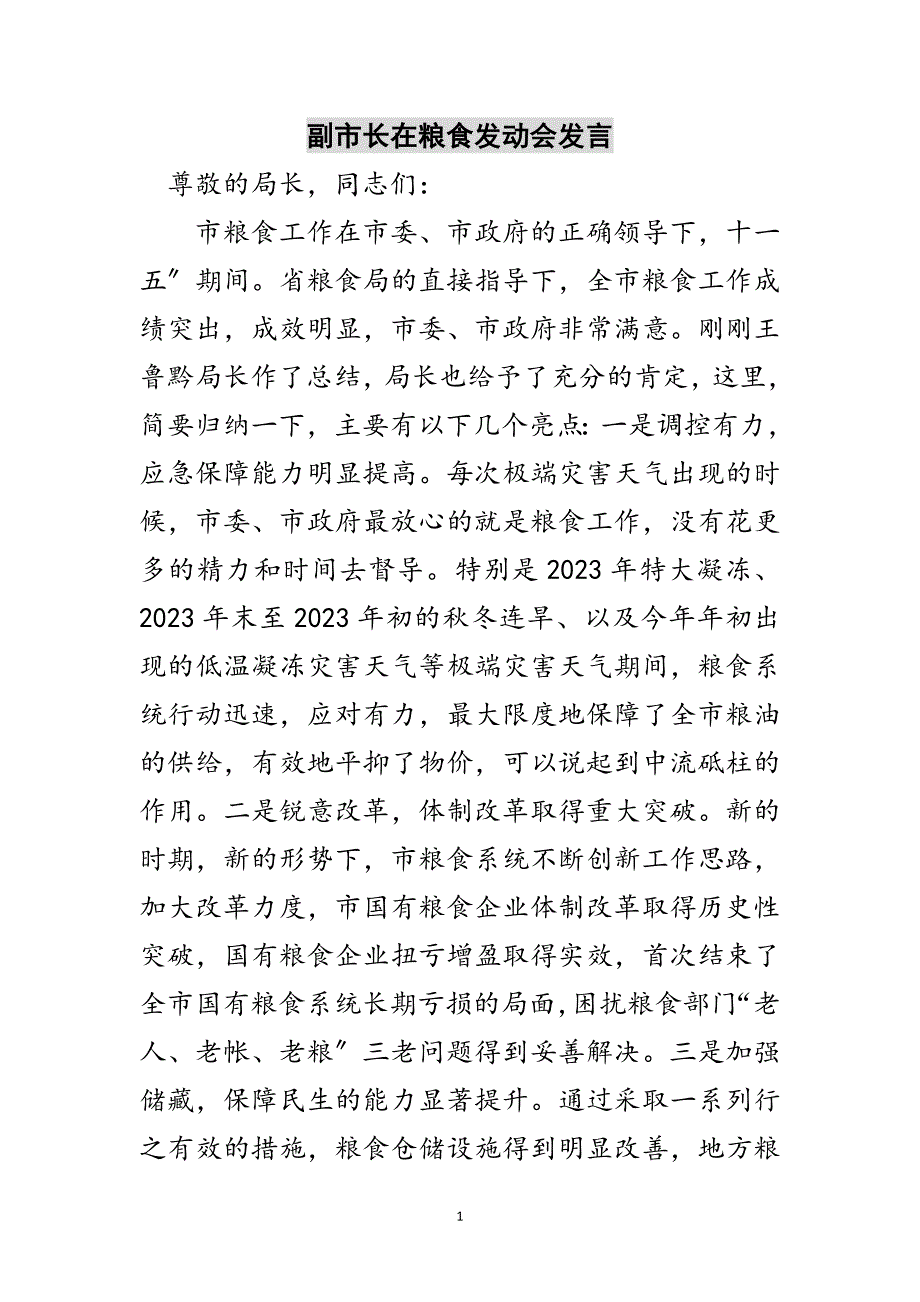 副市长在粮食发动会发言
尊敬的局长，同志们：
市粮食工作在市委、市政府的正确领导下，十一
五〞期间。省粮食局的直接指导下，全市粮食工作成
绩突出，成效明显，市委、市政府非常满意。刚刚王
鲁黔局长作了总结，局长也给予了充分的肯定，这里，
简要归纳一下，主要有以下几个亮点：一是调控有力，
应急保障能力明显提高。每次极端灾害天气出现的时
候，市委、市政府最放心的就是粮食工作，没有花更
多的精力和时间去督导。特别是 2023 年特大凝冻、
2023 年末至 2023 年初的秋冬连旱、以及今年年初出
现的低温凝冻灾害天气等极端灾害天气期间，粮食系
统行动迅速，应对有力，最大限度地保障了全市粮油
的供给，有效地平抑了物价，可以说起到中流砥柱的
作用。二是锐意改革，体制改革取得重大突破。新的
时期，新的形势下，市粮食系统不断创新工作思路，
加大改革力度，市国有粮食企业体制改革取得历史性
突破，国有粮食企业扭亏增盈取得实效，首次结束了
全市国有粮食系统长期亏损的局面，困扰粮食部门“老
人、老帐、老粮〞三老问题得到妥善解决。三是加强
储藏，保障民生的能力显著提升。通过采取一系列行
之有效的措施，粮食仓储设施得到明显改善，地方粮
1